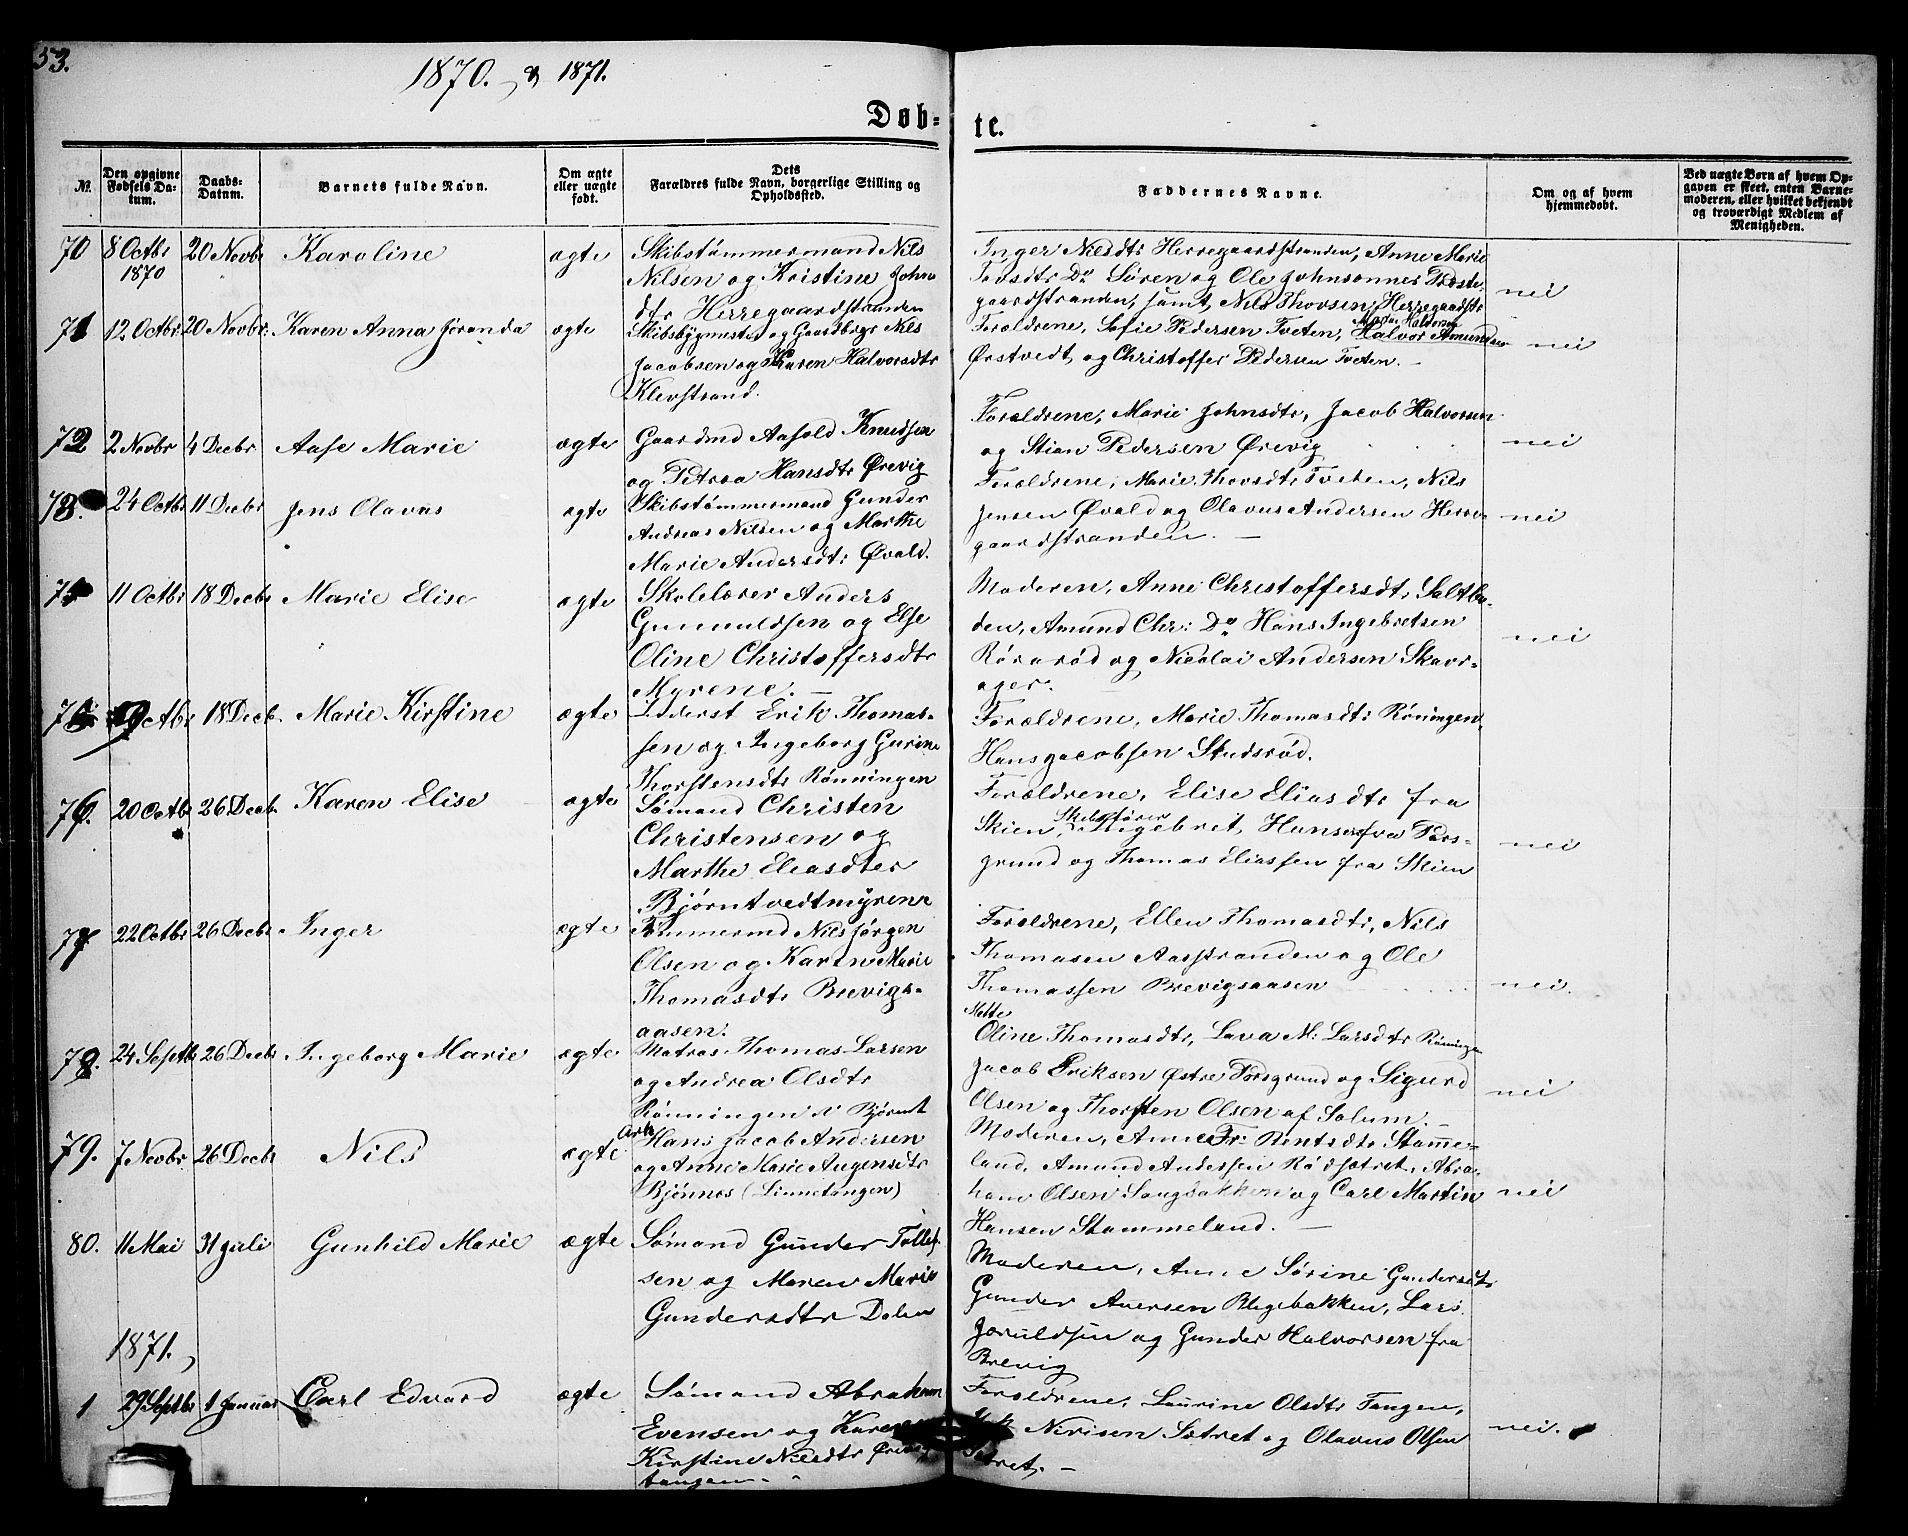 53.
1870. & 1871.
Døb- te.
№.
Den opgivne Fødsels Da-
tum.
Daabs-
Datum.
Barnets fulde Navn.
Om ægte
eller uægte
født.
Dets
Forældres fulde Navn, borgerlige Stilling og
Opholdssted.
Faddernes Navne.
Om og af hvem
hjemmedøbt.
Ved uægte Børn af hvem Op-
gaven er skeet, enten Barne-
moderen, eller hvilket bekjendt
og troværdigt Medlem af
Menigheden.
70 8 Octbr 1870 20 Novbr Karoline ægte
Skibstømmermand Nils
Nilsen og Kristine John
dtr Herregaardstranden
Inger Nielsdtr Herregaardstranden, Anne Marie
Tovsdtr Do Søren og Ole Johnsønner Præste-
gaardstranden, samt Nils Thovsen, Herregaardstr
nei
71 12 Octbr 20 Novbr. Karen Anna Joranda ægte
Skibsbygmester og Gaardbrgr Nils
Jacobsen og Karen Halvorsdtr
Klevstrand.
Forældrene, Sofie Pedersen Tveten, Halvor Amundsen
Ørstvedt og Christoffer Pedersen Tveten. -
nei
72 2 Novbr 4 Decbr Aase Marie ægte
Gaardmd Aasold Knudsen
og Petrea Hansdtr Ørevig
Forældrene, Marie Johnsdtr, Jacob Halvorsen
og Stian Pedersen Ørevig
nei
73. 24 Octbr 11 Decbr Jens Olavus ægte
Skibstømmermand Gunder
Andreas Nilsen og Marthe
Marie Andersdtr: Øvald.
Forældrene, Marie Thovsdtr Tveten, Nils
Jensen Øvald og Olavus Andersen Herre-
gaardstranden. -
nei
74 11 Octbr 18 Decbr Marie Elise ægte
Skolelærer Anders
Gunnuldsen og Else
Oline Christoffersdtr
Myrene. -
Moderen, Anne Christoffersdtr Saltbo-
den, Amund Chr: Do Hans Ingebretsen
Rørarød og Nicolai Andersen Skavr-
ager.
nei
75 19 Octbr 18 Decb. Marie Kirstine ægte
Inderst Erik Thomas-
sen og Ingeborg Gurine
Thorstensdtr Rønningen
Forældrene, Marie Thomasdtr Røningen,
Hans Jacobsen Studsrød.
76. 20 Octb 26 Decb. Karen Elise ægte
Sømand Christen
Christensen og
Marthe Eliasdter
Bjørntvedtmyrene
Forældrene, Elise Eliasdtr fra
Skien, Skibsfører Ingebret Hansen fra Pors-
grund og Thomas Eliassen fra Skien
nei
77 22 Octbr 26 Decbr Inger ægte
Tømmermd Nils Jørgen
Olsen og Karen Marie
Thomasdtr Brevigs-
aasen.
Forældrene, Ellen Thomasdtr, Nils
Thomasen Aasstranden og Ole
Thomassen Brevigsaasen
nei.
78. 24 Septb 26 Decbr Ingeborg Marie ægte
Matros Thomas Larsen
og Andrea Olsdtr
Rønningen v Bjørnt
Mette
Oline Thomasdtr, Lava M: Larsdtr Røninge
Jacob Eriksen Østre Porsgrund og Sigurd
Olsen og Thorsten Olsen af Solum. -
nei
79. 7 Novbr 26 Decbr Nils ægte
Arb Hans Jacob Andersen
og Anne Marie Augensdtr
Bjønnes (Linnetangen)
Moderen, Anne Fr: Bentsdtr Stamme-
land, Amund Andersen Rødsætret, Abra-
ham Olsen Saugbakken og Carl Martin
Hansen Stammeland. -
nei
80. 11 Mai 31 Juli Gunhild Marie ægte
Sømand Gunder Tollef
sen og Maren Marie
Gundersdtr Dalen
Moderen, Anne Sørine Gundersdtr
Gunder Auersen Blegebakken, Lars
Joruldsen og Gunder Halvorsen fra
Brevig
1871.
1 29 Septbr 1 Januar Carl Edvard ægte
Sømand Abraham
Evensen og Karen
Kirstine Nilsdtr Ørevig
tangen. -
Forældrene, Laurine Olsdtr Tangen,
Nirisen Sætret og Olavus Olsen
Sætret. -
nei.